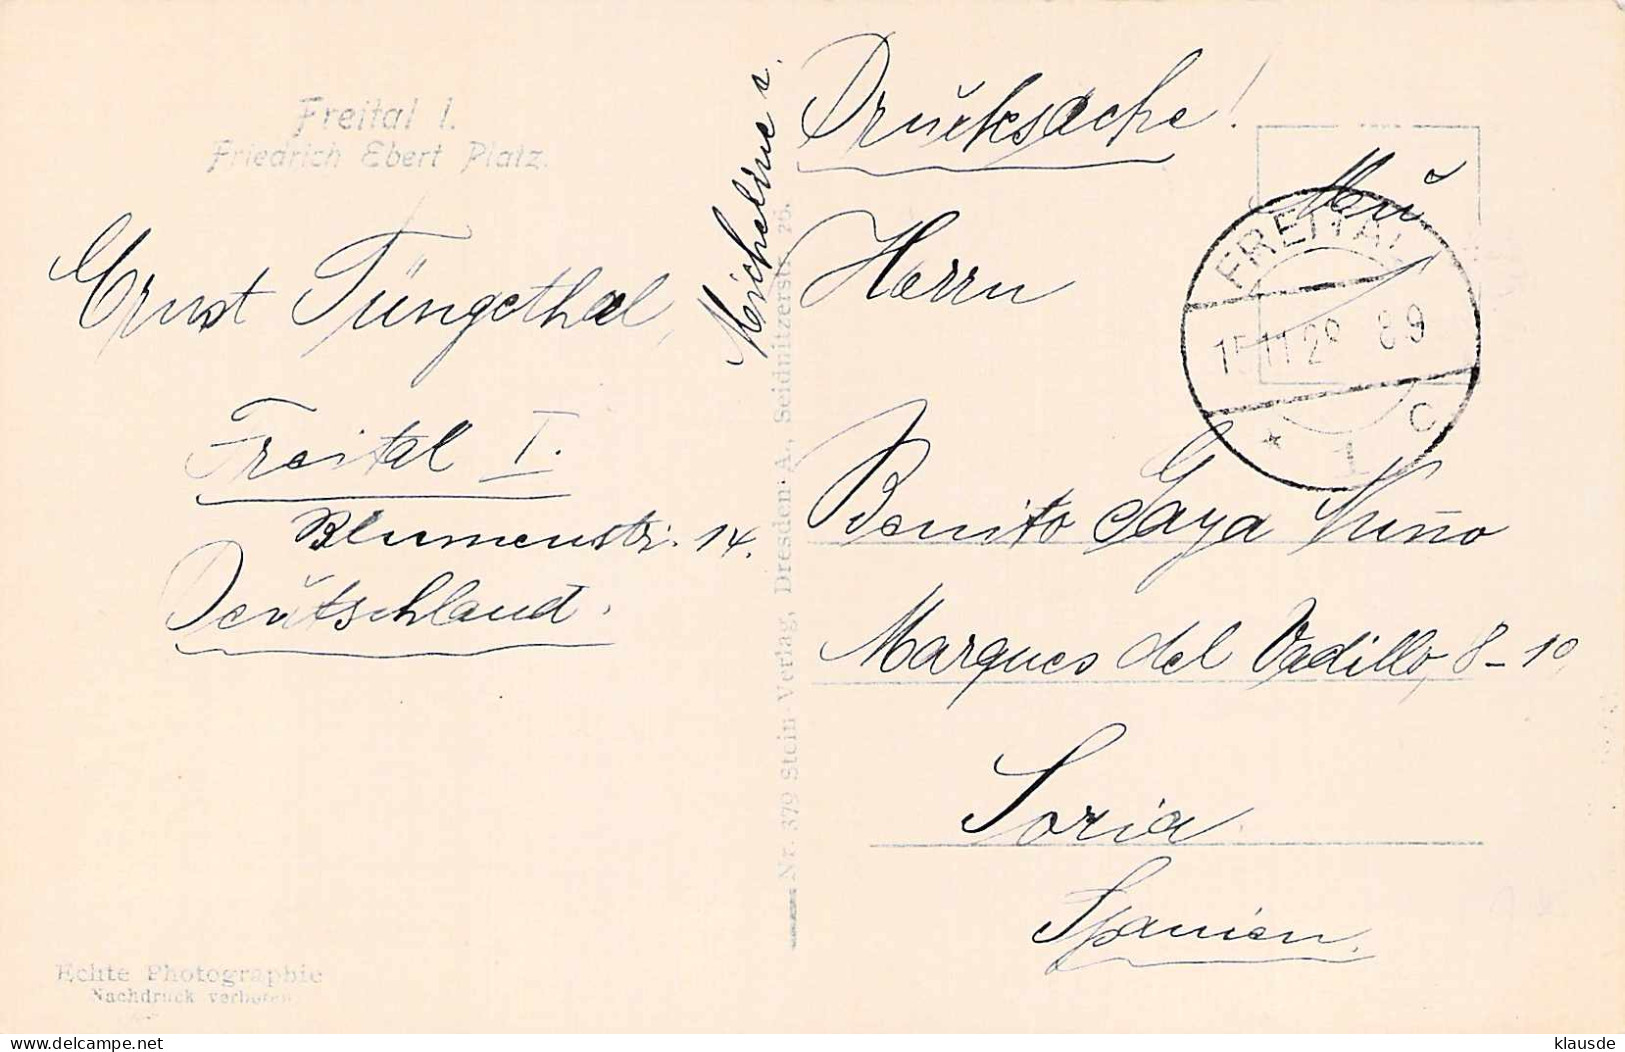 Freital I.
Friedrich Ebert Platz.
Ernst Tüngethal,
Freital I.
Blumenstr. 14.
Deutschland.
Echte Photographie
Nachdruck verboten
Nr. 379 Stein-Verlag, Dresden-A., Seidnitzerstr. 26.
Drucksache!
FREITAL
15.11.29 8-9
* 1 c
Herrn
Benito Gaya Nuño
Marques del Vadillo, 8-10,
Soria
Spanien.
klausde